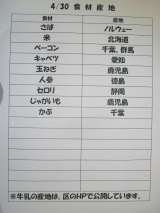 4/30 食材産地
食材 産地
さば ノルウェー
米 北海道
ベーコン 千葉, 群馬
キャベツ 愛知
玉ねぎ 鹿児島
人参 徳島
セロリ 静岡
じゃがいも 鹿児島
かぶ 千葉
※牛乳の産地は、区のHPで公開しています。